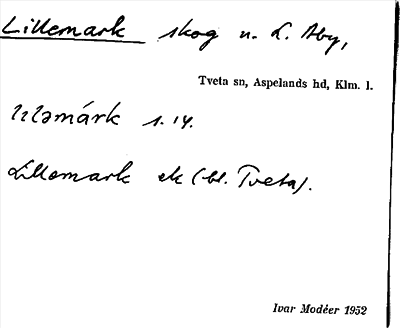 Lillemark skog n. L. Åby,
Tveta sn, Aspelands hd, Klm. l.
lıləmárk s. 14.
Lillemark ek (bl. Tveta).
Ivar Modéer 1952